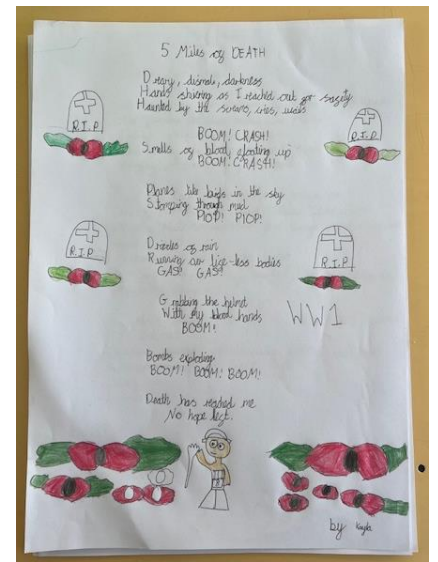 5 Miles of DEATH
Dreary, dismole, darkness
Hands shivering as I reached out for safity
Haunted by the screams, cries,
R.I.P
R.I.P
BOOM! CRASH!
Smells of blood, floating up
BOOM! CRASH!
Planes like birds in the sky
Stomping through mud
PLOP! PLOP!
R.I.P
R.I.P
Drooles of rain
Running on life-less bodies
GAS! GAS!
Grabbing the helmet
With my blood hands
BOOM!
WW1
Bombs exploding
BOOM! BOOM! BOOM!
Death has reached me
No hope left.
by Kayla